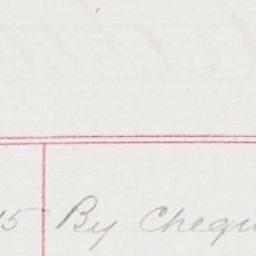 15 By Chequ